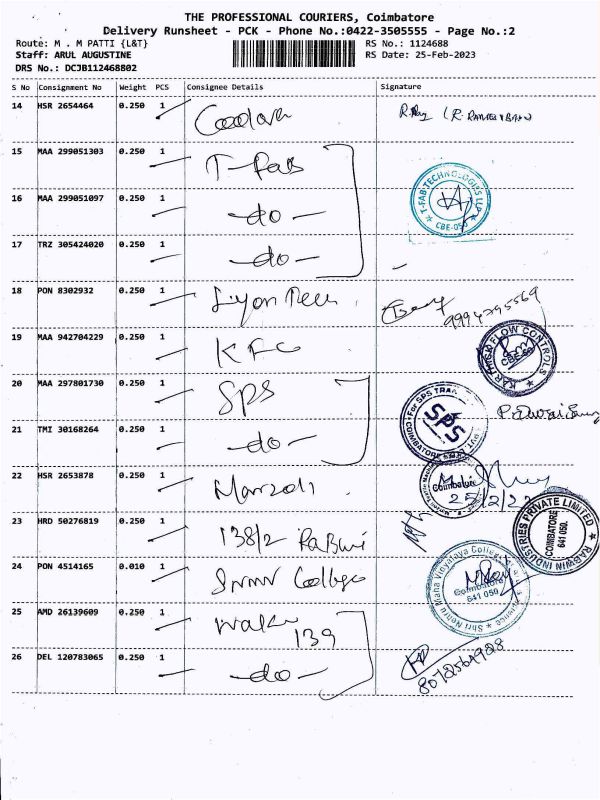 THE PROFESSIONAL COURIERS, Coimbatore
Delivery Runsheet - PCK - Phone No.:0422-3505555 - Page No.:2
Route: M . M PATTI {L&T}
RS No.: 1124688
Staff: ARUL AUGUSTINE
RS Date: 25-Feb-2023
DRS No.: DCJB112468802
S No Consignment No Weight PCS Consignee Details Signature
14 HSR 2654464 0.250 1
15 MAA 299051303 0.250 1 T-Fab
T-FAB TECHNOLOGIES LLP
CBE-050
16 MAA 299051097 0.250 1 -do-
17 TRZ 305424020 0.250 1 -do-
18 PON 8302932 0.250 1
9994795569
19 MAA 942704229 0.250 1 KFC
KAR HIGH FLOW CONTROLS
20 MAA 297801730 0.250 1 SPS
For SPS
SPS
21 TMI 30168264 0.250 1 -do-
22 HSR 2653878 0.250 1
Coimbatore
25/2/23
23 HRD 50276819 0.250 1 138/2
RABWIN INDUSTRIES PRIVATE LIMITED
COIMBATORE
641 050.
24 PON 4514165 0.010 1 SNMV College
Shri Nehru Maha Vidyalaya College
Coimbatore
641 050
25 AMD 26139609 0.250 1
139
26 DEL 120783065 0.250 1 -do-
8072564928